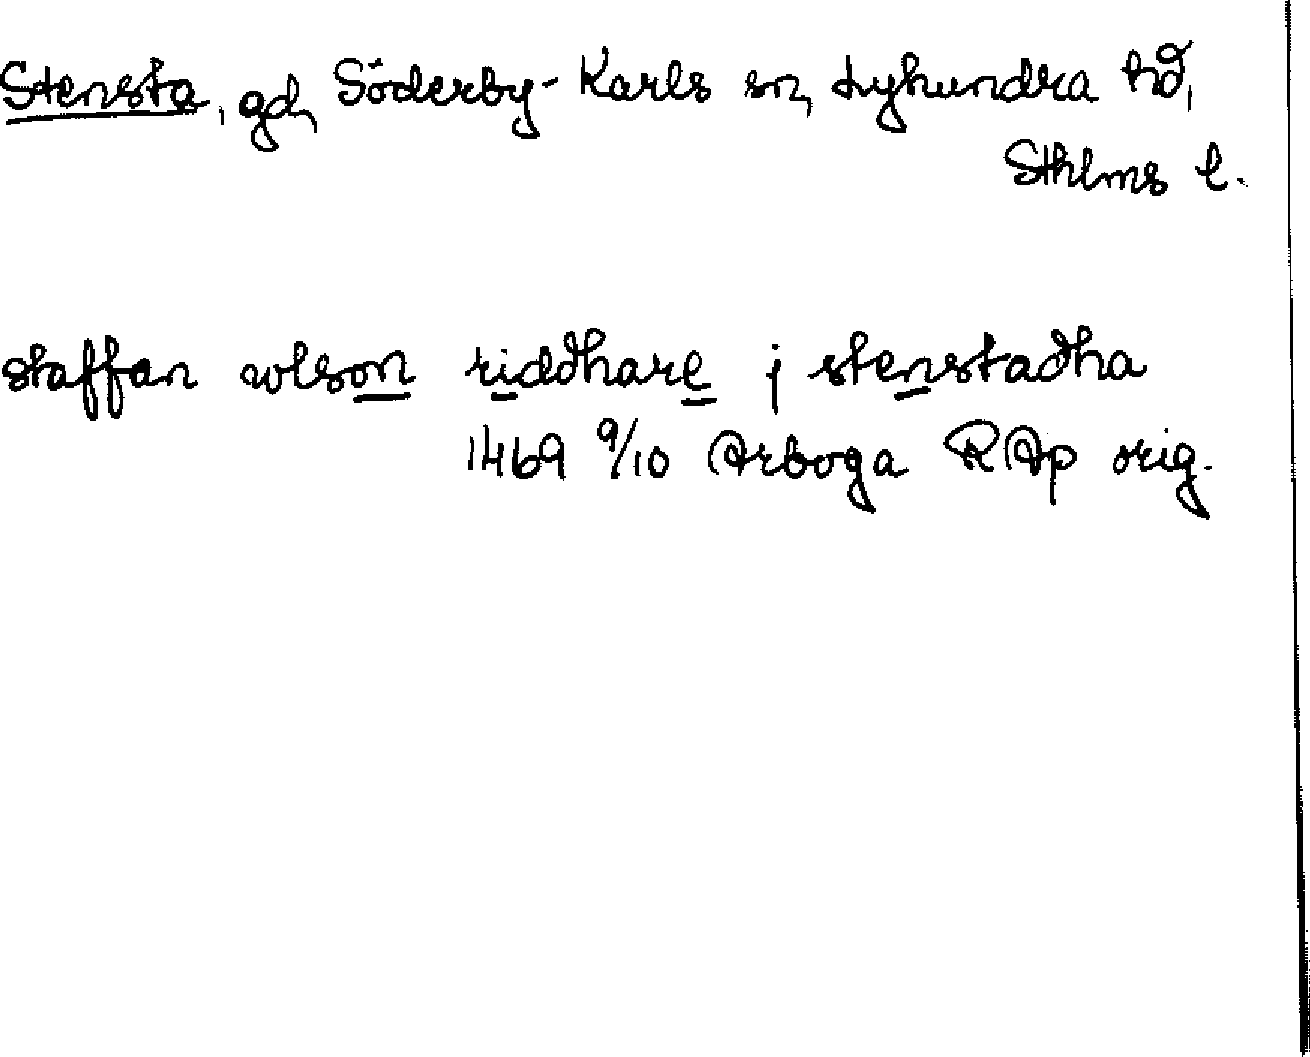 Stensta, gd, Söderby-Karls sn, Lyhundra hd,
Sthlms l.
staffan wlsson riddhare j stenstadha
1469 9/10 Arboga RAp orig.